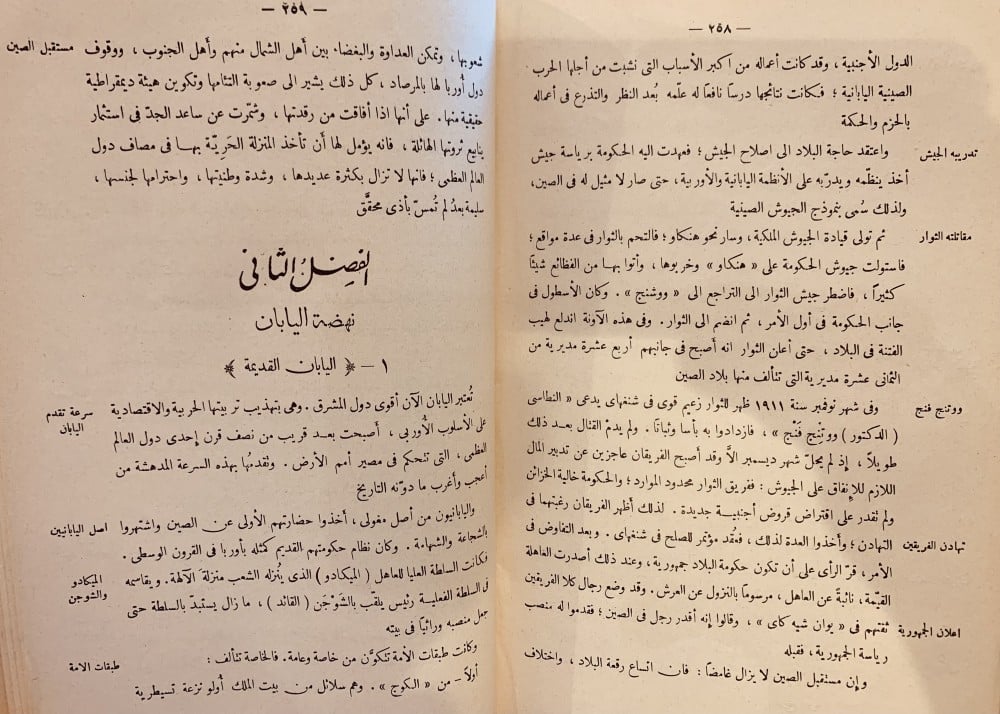 — ٢٥٨ —
الدول الأجنبية ، وقد كانت أعماله من اكبر الأسباب التى نشبت من أجلها الحرب
الصينية اليابانية ؛ فكانت نتائجها درسا نافعا له علّمه بُعد النظر والتذرع فى أعماله
بالحزم والحكمة
تدريبه الجيش
واعتقد حاجة البلاد الى اصلاح الجيش ؛ فعهدت اليه الحكومة برياسة جيش
أخذ ينظّمه ويدرّبه على الأنظمة اليابانية والأوربية ، حتى صار لا مثيل له فى الصين ،
ولذلك سُمى بنموذج الجيوش الصينية
مقاتلته الثوار
ثم تولى قيادة الجيوش الملكية ، وسار نحو هنكاو ؛ فالتحم بالثوار فى عدة مواقع ؛
فاستولت جيوش الحكومة على « هنكاو » وخربوها ، وأتوا بها من الفظائع شيئا
كثيراً ، فاضطر جيش الثوار الى التراجع الى « ووشنج » . وكان الأسطول فى
جانب الحكومة فى أول الأمر ، ثم انضم الى الثوار . وفى هذه الآونة اندلع لهيب
الفتنة فى البلاد ، حتى أعلن الثوار انه أصبح فى جانبهم أربع عشرة مديرية من
الثمانى عشرة مديرية التى تتألف منها بلاد الصين
ووتنج فنج
وفى شهر نوفمبر سنة ١٩١١ ظهر للثوار زعيم قوى فى شنغهاى يدعى « النطاسى
( الدكتور ) ووتِنْج فَنْج » ، فازدادوا به بأسا وثباتا . ولم يدم القتال بعد ذلك
طويلاً ، إذ لم يحلّ شهر ديسمبر الاَّ وقد أصبح الفريقان عاجزين عن تدبير المال
اللازم للإنفاق على الجيوش : ففريق الثوار محدود الموارد ؛ والحكومة خالية الخزائن
ولم تقدر على اقتراض قروض أجنبية جديدة . لذلك أظهر الفريقان رغبتهما فى
تهادن الفريقين
التهادن ؛ وأخذوا العدة لذلك ، فعُقد مؤتمر للصلح فى شنغهاى . وبعد التفاوض فى
الأمر ، قرّ الرأى على أن تكون حكومة البلاد جمهورية ، وعند ذلك أصدرت العاهلة
القيّمة ، نائبةً عن العاهل ، مرسوما بالنزول عن العرش . وقد وضع رجال كلا الفريقين
اعلان الجمهورية
ثقتهم فى « يوان شيه كاى » ، وقالوا إنه أقدر رجل فى الصين ؛ فقدموا له منصب
رياسة الجمهورية ، فقبله
وإن مستقبل الصين لا يزال غامضا : فان اتساع رقعة البلاد ، واختلاف
— ٢٥٩ —
مستقبل الصين
شعوبها ، وتمكن العداوة والبغضاء بين أهل الشمال منهم وأهل الجنوب ، ووقوف
دول أوربا لها بالمرصاد ، كل ذلك يشير الى صعوبة التئامها وتكوين هيئة ديمقراطية
حقيقية منها . على أنها اذا أفاقت من رقدتها ، وشمّرت عن ساعد الجدّ فى استثمار
ينابيع ثروتها الهائلة ، فانه يؤمل لها أن تأخذ المنزلة الحَرِيّة بها فى مصاف دول
العالم العظمى ؛ فانها لا تزال بكثرة عديدها ، وشدة وطنيتها ، واحترامها لجنسها ،
سليمة بعدُ لم تُمسّ بأذى محقَّق
الفصل الثانى
نهضة اليابان
١ – ﴿ اليابان القديمة ﴾
سرعة تقدم
اليابان
تُعتبر اليابان الآن أقوى دول المشرق . وهى بتهذيب تربيتها الحربية والاقتصادية
على الأسلوب الأوربى ، أصبحت بعد قريب من نصف قرن إحدى دول العالم
العظمى ، التى تتحكم فى مصير أمم الأرض . وتقدمُها بهذه السرعة المدهشة من
أعجب وأغرب ما دوّنه التاريخ
اصل اليابانيين
واليابانيون من أصل مغولى ، أخذوا حضارتهم الأولى عن الصين واشتهروا
بالشجاعة والشهامة . وكان نظام حكومتهم القديم كمثله بأوربا فى القرون الوسطى .
الميكادو
والشوجن
فكانت السلطة العليا للعاهل ( الميكادو ) الذى يُنزله الشعب منزلة الآلهة . ويقاسمه
فى السلطة الفعلية رئيس يلقّب بالشَوْجَن ( القائد ) ، ما زال يستبدّ بالسلطة حتى
جعل منصبه وراثيا فى بيته
طبقات الامة
وكانت طبقات الأمة تتكوَّن من خاصة وعامة . فالخاصة تتألف :
أولاً – من « الكوج » . وهم سلائل من بيت الملك أولو نزعة تسيطرية